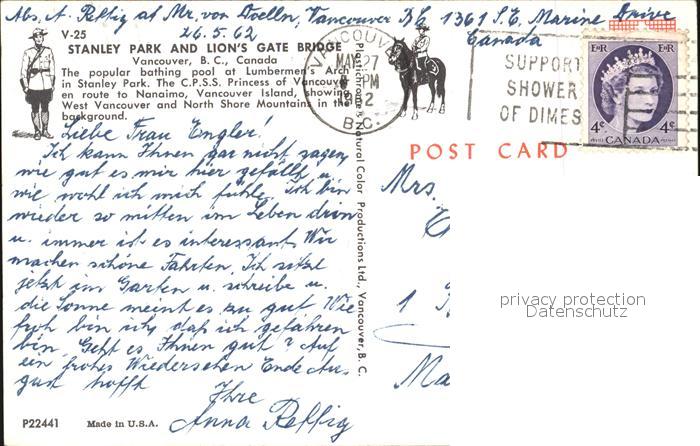 Abs. A. Reffig at Mr. von Doelln, Vancouver BC 1361 S.E. Marine Drive
26.5.62 Canada
V-25
STANLEY PARK AND LION'S GATE BRIDGE
Vancouver, B. C., Canada
The popular bathing pool at Lumbermen's Arch
in Stanley Park. The C.P.S.S. Princess of Vancouver
en route to Nanaimo, Vancouver Island, showing
West Vancouver and North Shore Mountains in the
background.
Liebe Frau Engler!
Ich kann Ihnen gar nicht sagen,
wie gut es mir hier gefällt u.
wie wohl ich mich fühle. Ich bin
wieder so mitten im Leben drin
u. immer ist es interessant. Wir
machen schöne Fahrten. Ich sitze
jetzt im Garten u. schreibe u.
die Sonne meint es zu gut. Wie
froh bin ich, daß ich gefahren
bin. Geht es Ihnen gut? Auf
ein frohes Wiedersehen Ende Au-
gust hofft
Ihre
Anna Reffig
P22441 Made in U.S.A.
Plastichrome Natural Color Productions Ltd., Vancouver, B. C.
VANCOUVER
MAY 27
PM
B.C.
SUPPORT
SHOWER
OF DIMES
EIIR EIIR
4¢ 4¢
CANADA
POSTES POSTAGE
POST CARD
Mrs.
1
Ma
privacy protection
Datenschutz